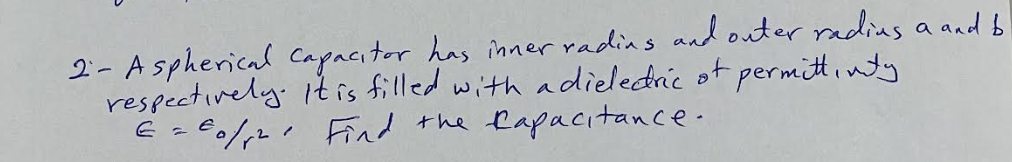 2- A spherical capacitor has inner radius and outer radius a and b
respectively. It is filled with a dielectric of permittivity
ϵ = ϵ₀/r², Find the capacitance.